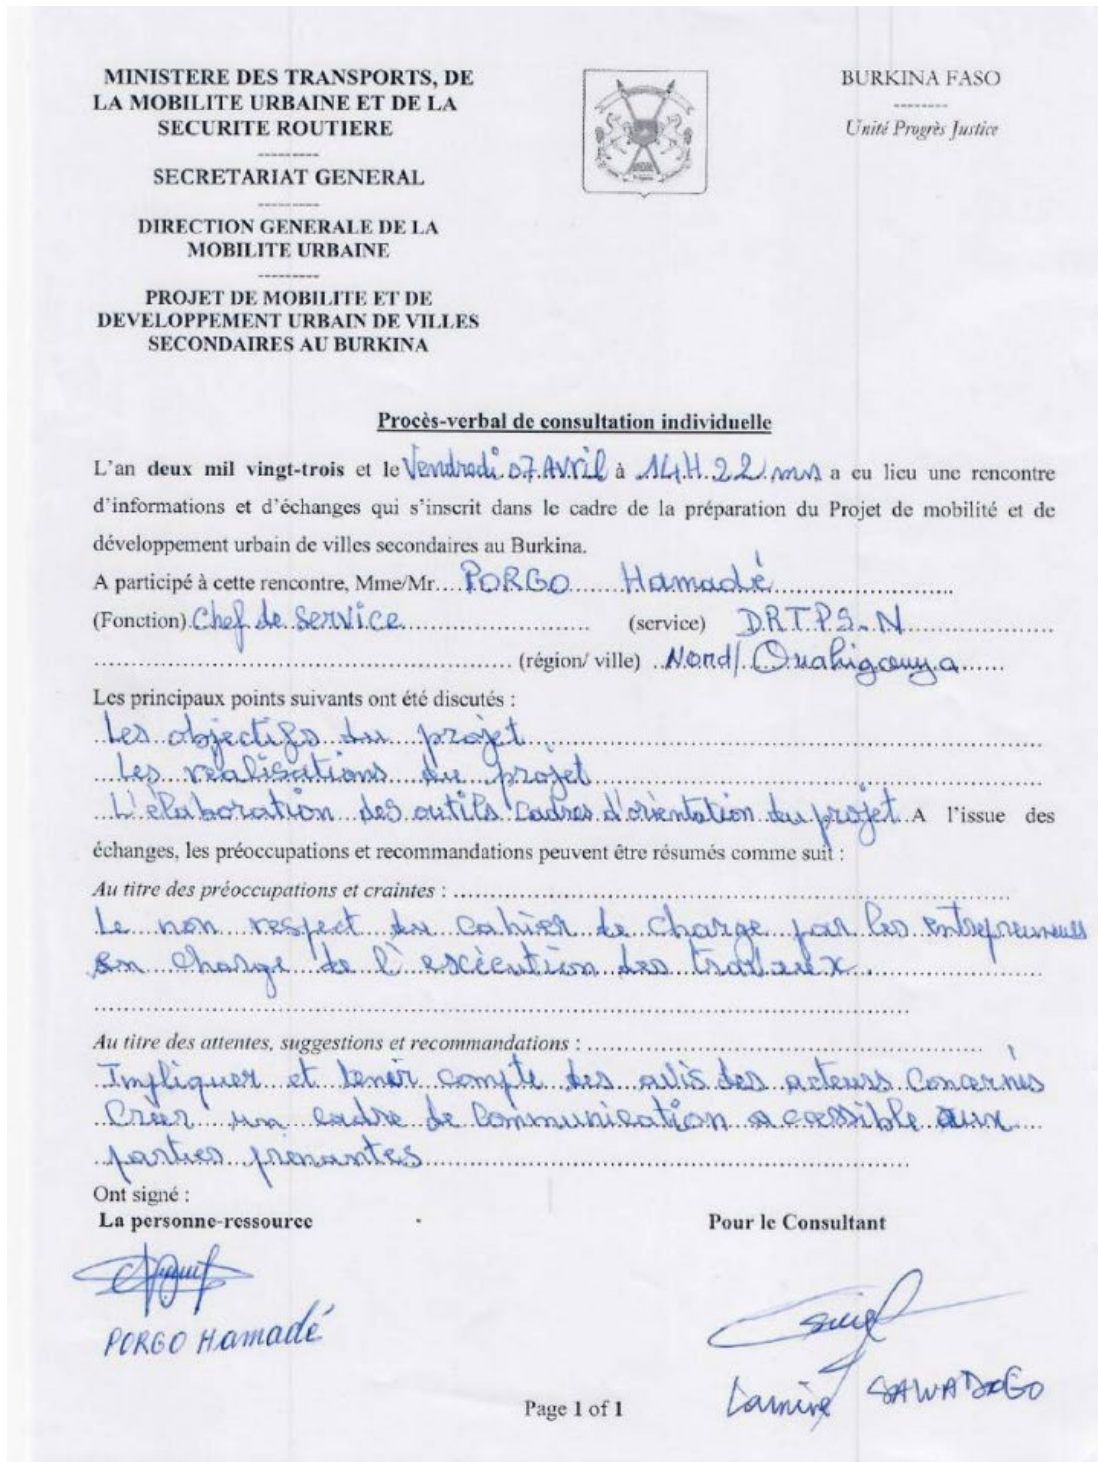 MINISTERE DES TRANSPORTS, DE
LA MOBILITE URBAINE ET DE LA
SECURITE ROUTIERE
---------
SECRETARIAT GENERAL
---------
DIRECTION GENERALE DE LA
MOBILITE URBAINE
---------
PROJET DE MOBILITE ET DE
DEVELOPPEMENT URBAIN DE VILLES
SECONDAIRES AU BURKINA
BURKINA FASO
--------
Unité Progrès Justice
Procès-verbal de consultation individuelle
L'an deux mil vingt-trois et le Vendredi 07 Avril à 14H 22 mn a eu lieu une rencontre
d'informations et d'échanges qui s'inscrit dans le cadre de la préparation du Projet de mobilité et de
développement urbain de villes secondaires au Burkina.
A participé à cette rencontre, Mme/Mr.... PORGO Hamadé
(Fonction) Chef de Service (service) DRTPS-N
(région/ ville) Nord/Ouahigouya
Les principaux points suivants ont été discutés :
Les objectifs du projet
Les réalisations du projet
L'élaboration des outils cadres d'orientation du projet. A l'issue des
échanges, les préoccupations et recommandations peuvent être résumés comme suit :
Au titre des préoccupations et craintes :
Le non respect du cahier de charge par les entrepreneurs
en charge de l'exécution des travaux.
Au titre des attentes, suggestions et recommandations :
Impliquer et tenir compte des avis des acteurs concernés
Créer un cadre de communication accessible aux
parties prenantes
Ont signé :
La personne-ressource
Pour le Consultant
PORGO Hamadé
Lamine SAWADOGO
Page 1 of 1